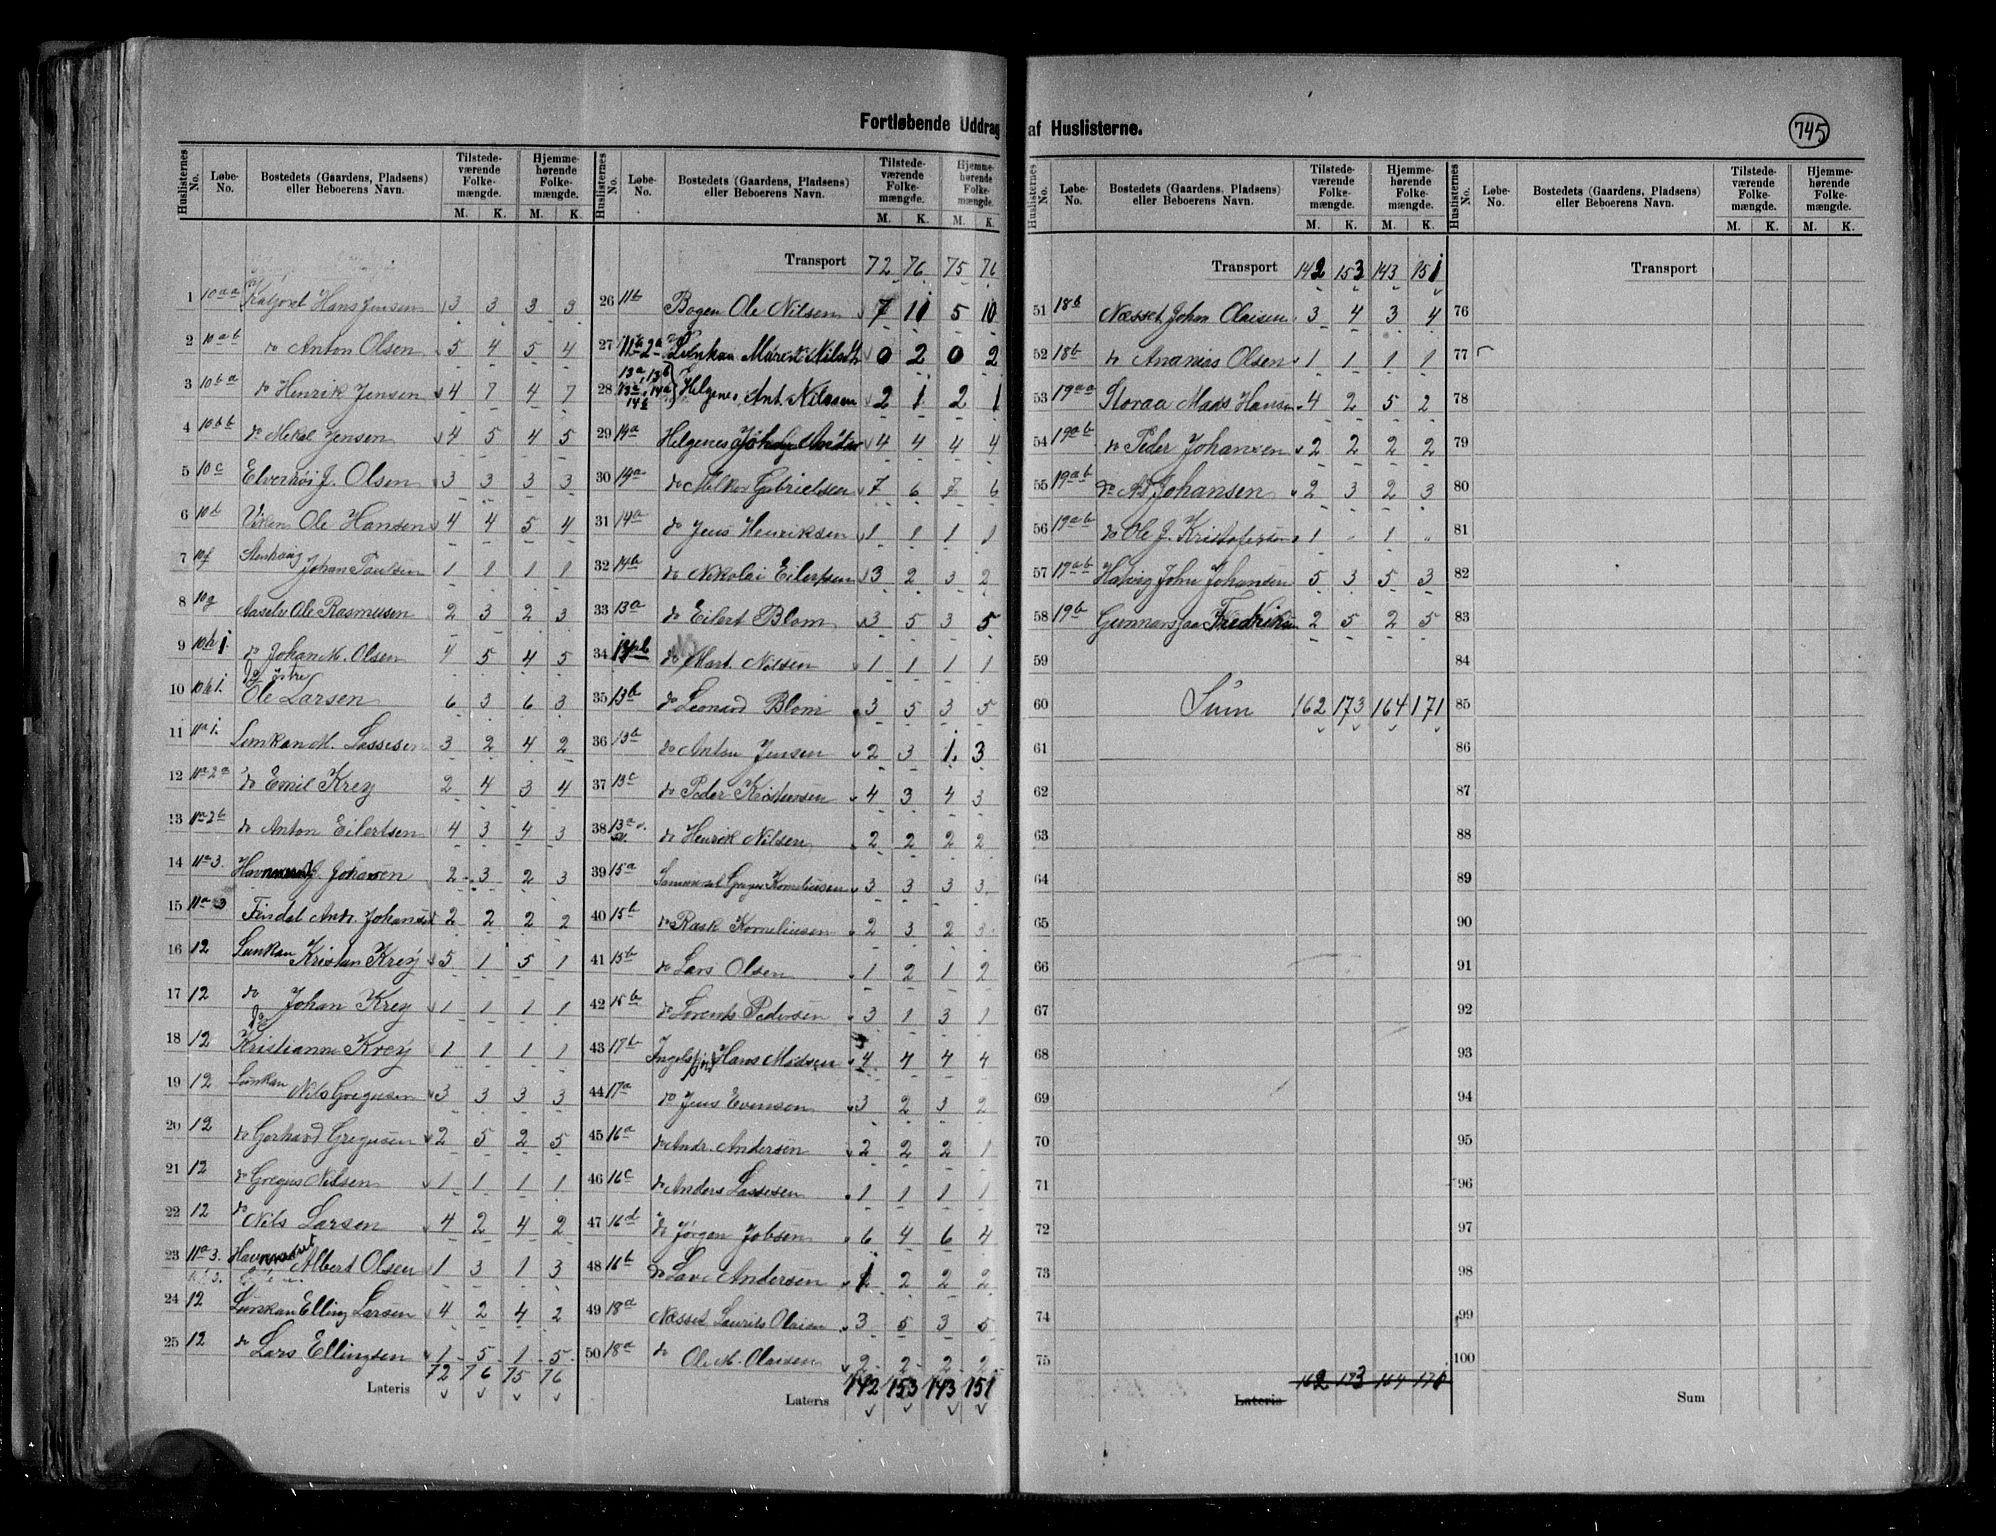 Fortløbende Uddrag af Huslisterne.
745
Huslisternes No. Løbe-No. Bostedets (Gaardens, Pladsens) eller Beboerens Navn. Tilstedeværende Folkemængde. M. K. Hjemmehørende Folkemængde. M. K.
1 10aa Hans Jensen 3 3 3 3
2 10ab do Anton Olsen 5 4 5 4
3 10ba do Henrik Jensen 4 7 4 7
4 10bb do Mekal Jensen 4 5 4 5
5 10c Elverhøi J. Olsen 3 3 3 3
6 Ole Hansen 4 4 5 4
7 10f Johan Paulsen 1 1 1 1
8 10g Ole Rasmusen 2 3 2 3
9 10h1 do Johan M. Olsen 4 5 4 5
10 10h1. do østre Ole Larsen 6 3 6 3
11 11a1. Lunkan M. Lassesen 3 2 4 2
12 11a2a do Emil Krey 2 4 3 4
13 11a2b do Anton Eilertsen 4 3 4 3
14 11a3. J. Johansen 2 3 2 3
15 11a3 Findal Andr. Johansen 2 2 2 2
16 12 Lunkan Kristian Krey 5 1 5 1
17 12 do Johan Krey 1 1 1 1
18 12 do Kristianne Krey 1 1 1 1
19 12 Lunkan Nils Gregusen 3 3 3 3
20 12 do Gerhard Gregusen 2 5 2 5
21 12 do Gregus Nilsen 1 1 1 1
22 12 do Nils Larsen 4 2 4 2
23 11a3. Havnnæset Albert Olsen 1 3 1 3
24 12 Lunkan Elling Larsen 4 2 4 2
25 12 do Lars Ellingsen 1 5 1 5
Lateris 72 76 75 76
Huslisternes No. Løbe-No. Bostedets (Gaardens, Pladsens) eller Beboerens Navn. Tilstedeværende Folkemængde. M. K. Hjemmehørende Folkemængde. M. K.
Transport 72 76 75 76
26 11b Bogen Ole Nilsen 7 11 5 10
27 11a2a Lunkan 0 2 0 2
28 13a, 13b 14a 14b Helgenes Ant. Nilssen 2 1 2 1
29 14a Helgenes 4 4 4 4
30 14a do Melkor Gabrielsen 7 6 7 6
31 14a do Jens Henriksen 1 1 1 1
32 14b do Nikolai Eilertsen 3 2 3 2
33 13a do Eilert Blom 3 5 3 5
34 do Mart. Nilsen 1 1 1 1
35 13b do Leonard Blom 3 5 3 5
36 13b do Anton Jensen 2 3 1 3
37 13c do Peder Kristiansen 4 3 4 3
38 13a do Henrik Nilsen 2 2 2 2
39 15a Korneliusen 3 3 3 3
40 15b do Rask Korneliusen 2 3 2 3
41 15b do Lars Olsen 1 2 1 2
42 15b do Lorents Pedersen 3 1 3 1
43 17b Ingelsfjord Hans Madsen 4 4 4 4
44 17a do Jens Evensen 3 2 3 2
45 16a do Andr. Andersen 2 2 2 1
46 16c do Anders Lassesen 1 1 1 1
47 16d do Jørgen Jobsen 6 4 6 4
48 16b do Andersen 1 2 2 2
49 18a Næsset Laurits Olaisen 3 5 3 5
50 18a do Ole M. Olaisen 2 2 2 2
Lateris 142 153 143 151
Huslisternes No. Løbe-No. Bostedets (Gaardens, Pladsens) eller Beboerens Navn. Tilstedeværende Folkemængde. M. K. Hjemmehørende Folkemængde. M. K.
Transport 142 153 143 151
51 18b Næsset John Olaisen 3 4 3 4
52 18b do Ananias Olsen 1 1 1 1
53 19aa Storaa Mads Hansen 4 2 5 2
54 19ab do Peder Johansen 2 2 2 2
55 19ab do Johansen 2 3 2 3
56 19ab do Ole J. Kristofersen 1 " 1 "
57 19ab John Johansen 5 3 5 3
58 19b Fredriksen 2 5 2 5
59
60 Sum 162 173 164 171
61
62
63
64
65
66
67
68
69
70
71
72
73
74
75
Lateris 162 173 164 171
Huslisternes No. Løbe-No. Bostedets (Gaardens, Pladsens) eller Beboerens Navn. Tilstedeværende Folkemængde. M. K. Hjemmehørende Folkemængde. M. K.
Transport
76
77
78
79
80
81
82
83
84
85
86
87
88
89
90
91
92
93
94
95
96
97
98
99
100
Sum